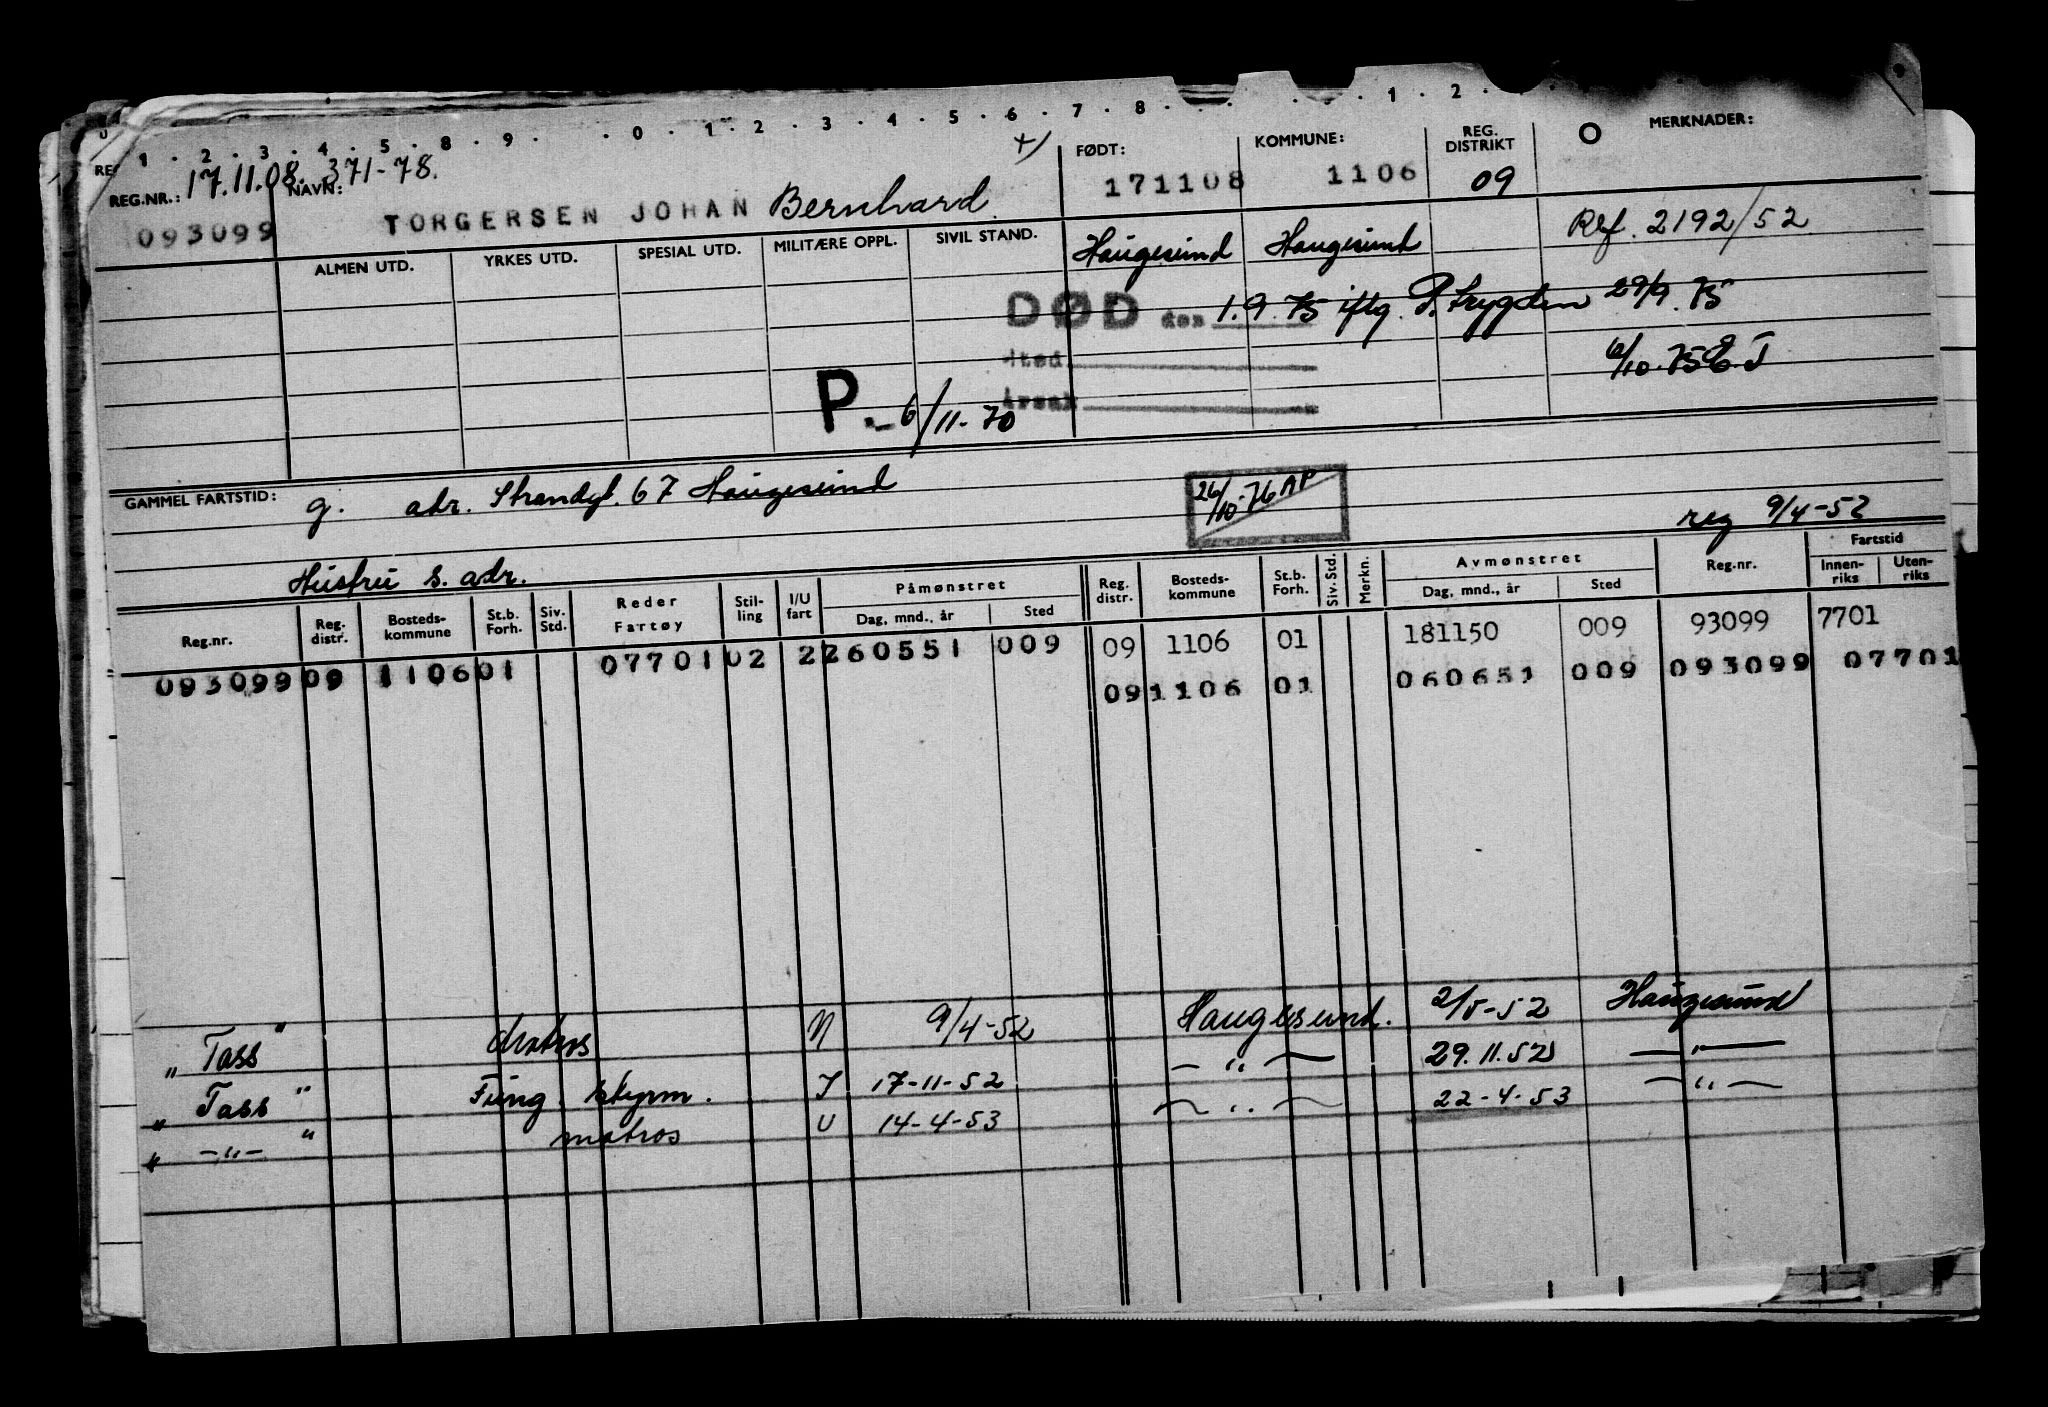 1 . 2 . 3 . 4 . 5 . 8 . 9 . . 0 . 1 . 2 . 3 . 4 . 5 . 6 . 7 . 8 . . 1 . 2 .
REG.NR.: 17.11.08. 371-78. NAVN: +) FØDT: KOMMUNE: REG. DISTRIKT MERKNADER:
093099 TORGERSEN JOHAN Bernhard. 171108 1106 09
ALMEN UTD. YRKES UTD. SPESIAL UTD. MILITÆRE OPPL. SIVIL STAND. Haugesund Haugesund Ref. 2192/52
DØD den 1.9.75 iflg. P.trygden 29/9.75
sted 6/10.75 E.J
P. 6/11-70 Årsak
GAMMEL FARTSTID: g. adr. Strandgt. 67 Haugesund 26/10-76 AP
reg 9/4-52
Hustru s. adr.
Reg.nr. Reg. distr. Bosteds-kommune St.b. Forh. Siv. Std. Reder Fartøy Stil-ling I/U fart Påmønstret Dag, mnd., år Sted Reg. distr. Bosteds-kommune St.b. Forh. Siv. Std. Merkn. Avmønstret Dag, mnd., år Sted Reg.nr. Fartstid Innen-riks Uten-riks
09 1106 01 181150 009 93099 7701
093099 09 1106 01 07701 02 2 260551 009 09 1106 01 060651 009 093099 07701
" Tass " Matros N 9/4-52 Haugesund. 2/5-52 Haugesund
" Tass " Fung. styrm. I 17-11-52 — " — 29.11.52 — " —
" — " — " matros U 14-4-53 — " — 22-4-53 — " —